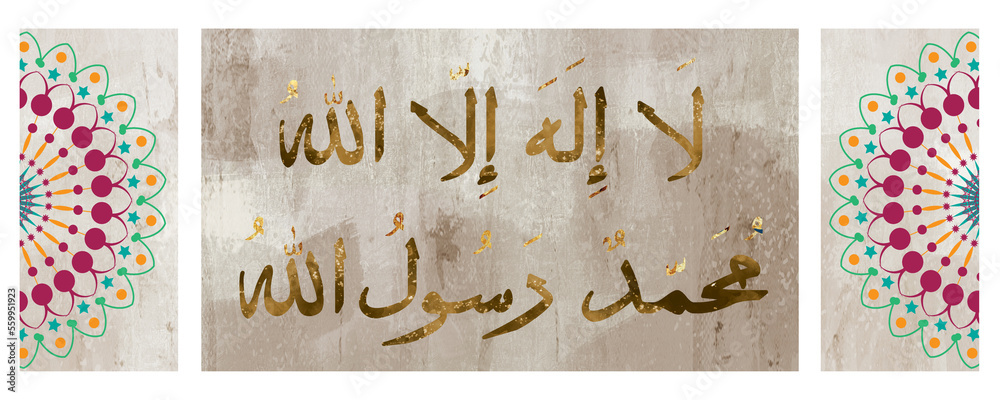 لَا إِلَهَ إِلَّا اللهُ
مُحَمَّدٌ رَسُولُ اللهُ
Adobe Stock | #559951923